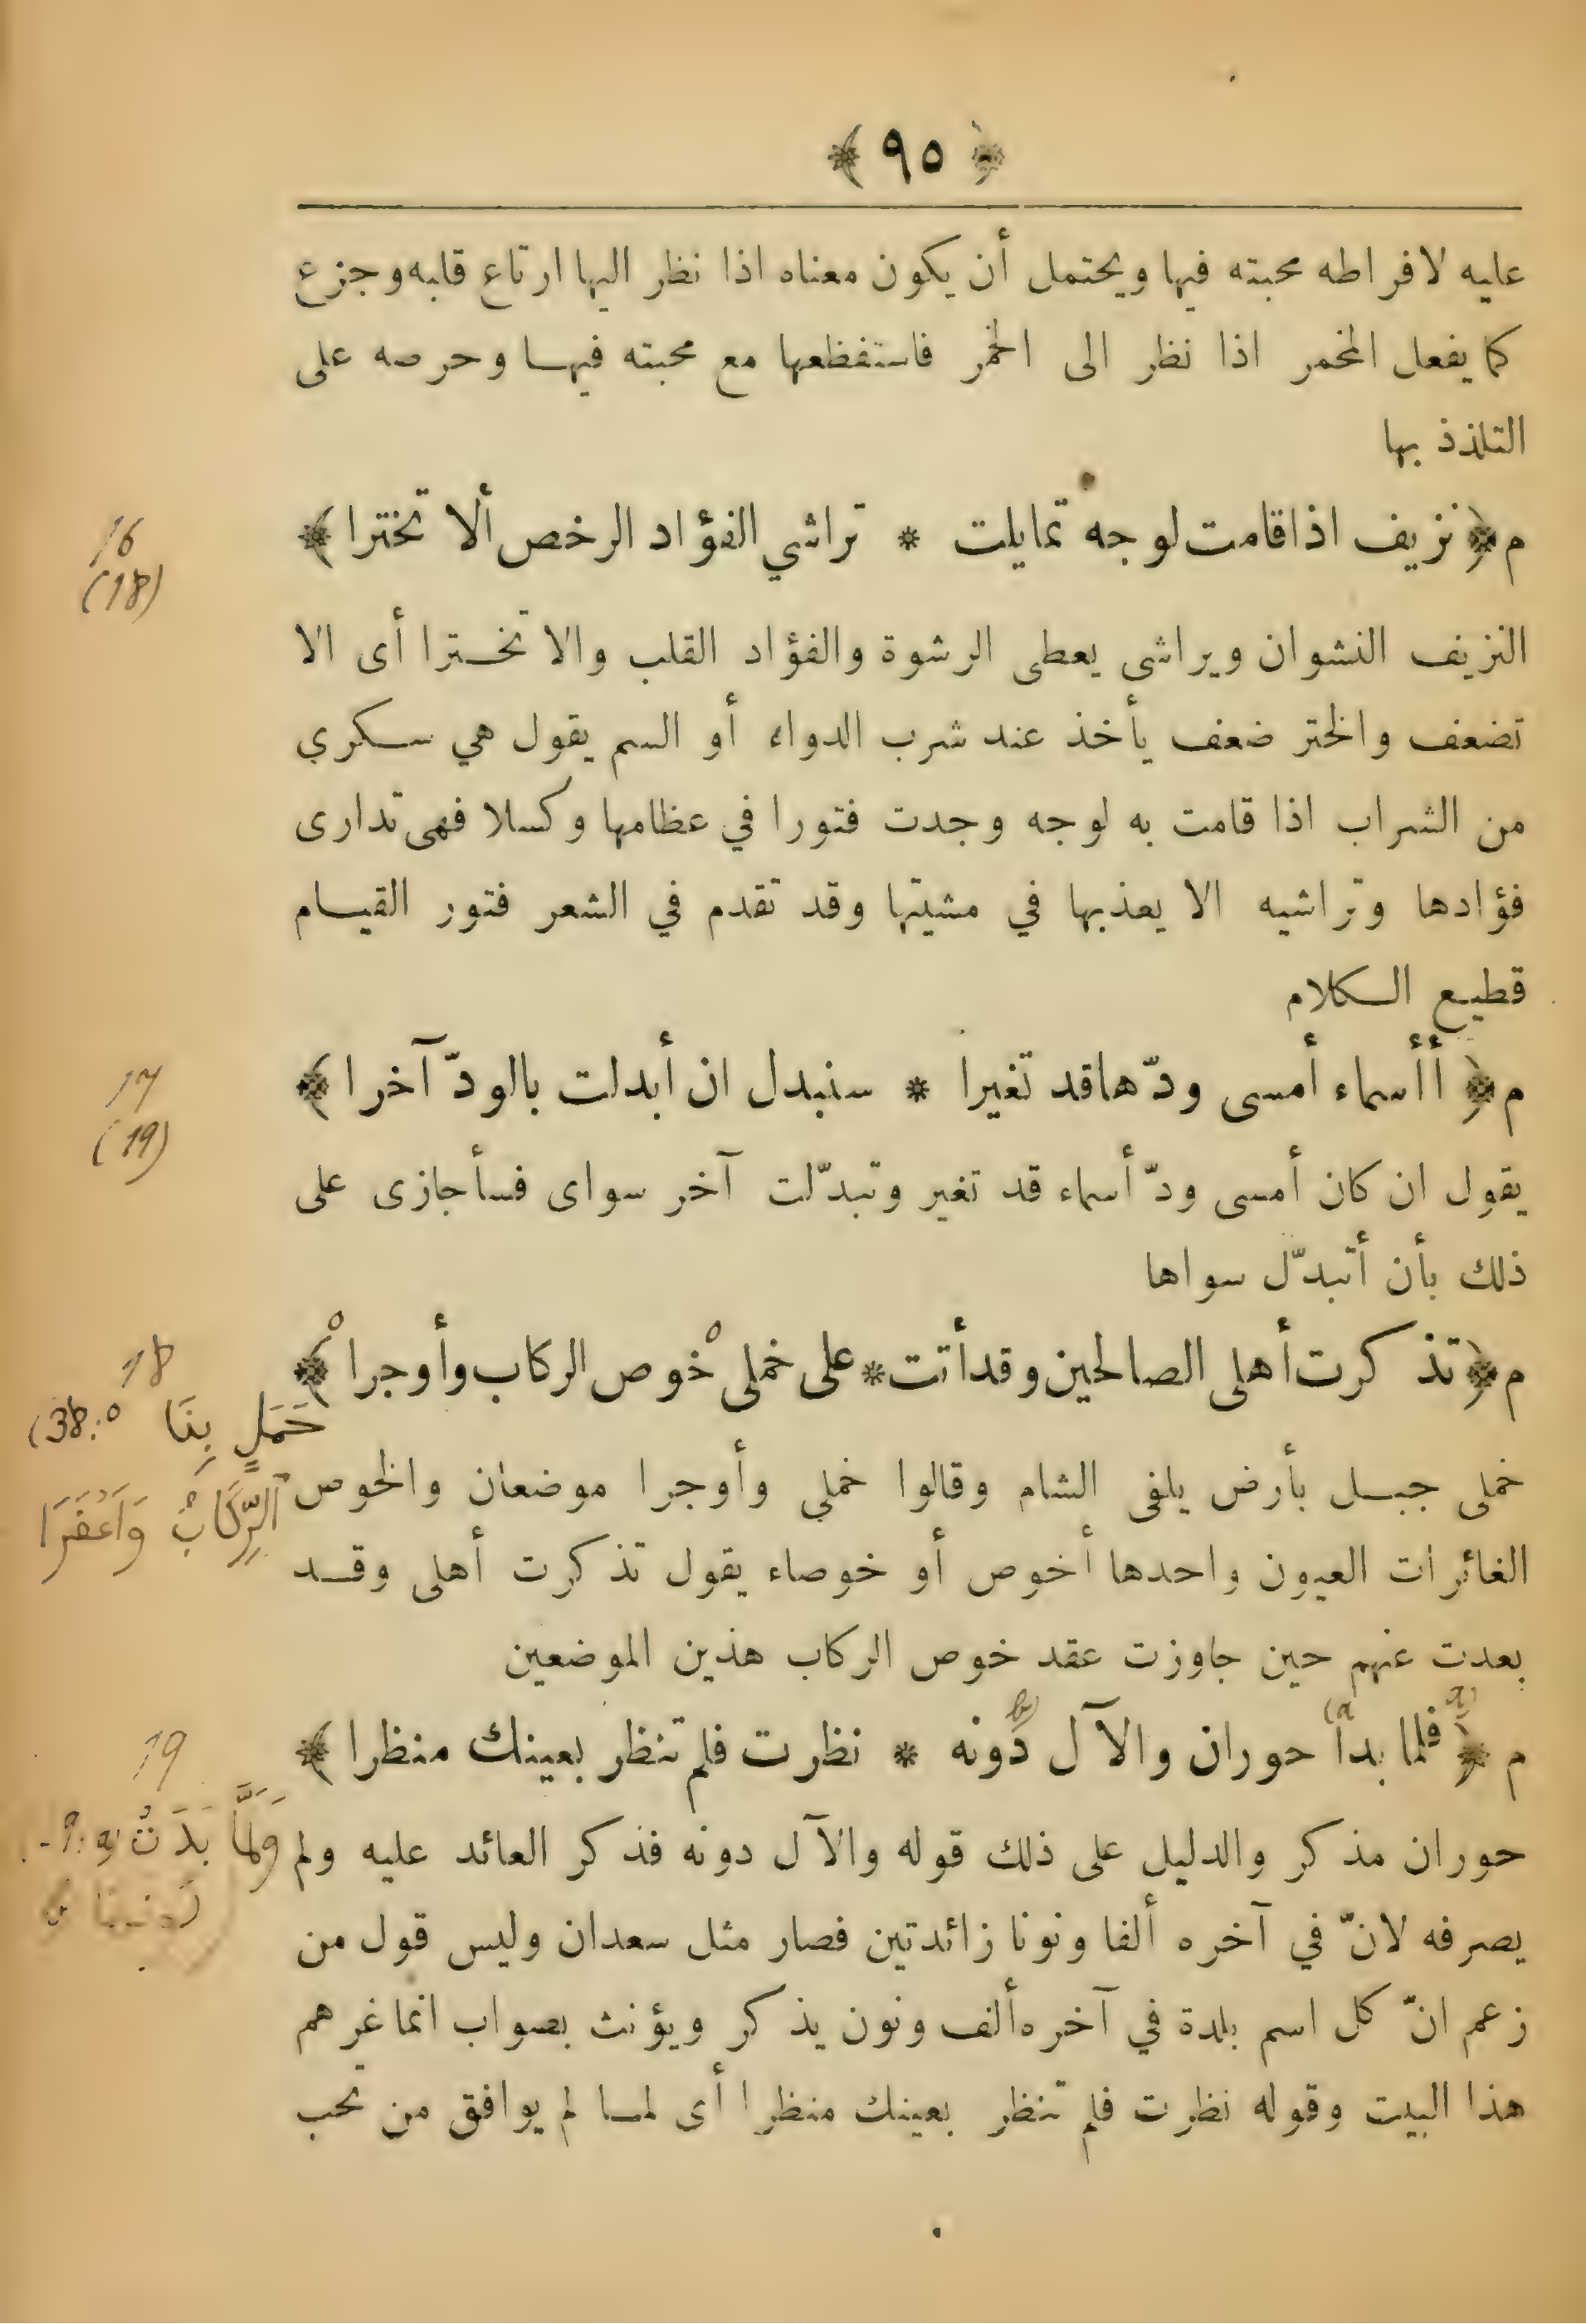 ﴿ ٩٥ ﴾
عليه لافراطه محبته فيها ويحتمل أن يكون معناه اذا نظر اليها ارتاع قلبه وجزع
كما يفعل المخمر اذا نظر الى الخمر فاستفظعها مع محبته فيها وحرصه على
التلذذ بها
م ﴿ نزيف اذا قامت لوجه تمايلت * تراشي الفؤاد الرخص ألا تخترا ﴾
16
(18)
النزيف النشوان ويراشى يعطى الرشوة والفؤاد القلب والا تخترا أى الا
تضعف والختر ضعف يأخذ عند شرب الدواء أو السم يقول هي سكرى
من الشراب اذا قامت به لوجه وجدت فتورا في عظامها وكسلا فهى تدارى
فؤادها وتراشيه الا يعذبها في مشيتها وقد تقدم في الشعر فتور القيام
قطيع الكلام
م ﴿ أأسماء أمسى ودّها قد تغيرا * سنبدل ان أبدلت بالودّ آخرا ﴾
17
(19)
يقول ان كان أمسى ودّ أسماء قد تغير وتبدّلت آخر سواى فسأجازى على
ذلك بأن أتبدّل سواها
م ﴿ تذكرت أهلى الصالحين وقد أتت * على خملى خوص الركاب وأوجرا ﴾
18
حَمَلٍ بِنَا
الرِّكَابُ وَأَعْفَرَا
خملى جبل بأرض يلقى الشام وقالوا خملي وأوجرا موضعان والخوص
الغائرات العيون واحدها أخوص أو خوصاء يقول تذكرت أهلى وقد
بعدت عنهم حين جاوزت عقد خوص الركاب هذين الموضعين
م ﴿ فلما بدا حوران والآل دونه * نظرت فلم تنظر بعينك منظرا ﴾
19
وَلَمَّا بَدَتْ
حوران مذكر والدليل على ذلك قوله والآل دونه فذكر العائد عليه ولم
يصرفه لانّ في آخره ألفا ونونا زائدتين فصار مثل سعدان وليس قول من
زعم انّ كل اسم بلدة في آخره ألف ونون يذكر ويؤنث بصواب انما غرهم
هذا البيت وقوله نظرت فلم تنظر بعينك منظرا أى لما لم يوافق من تحب